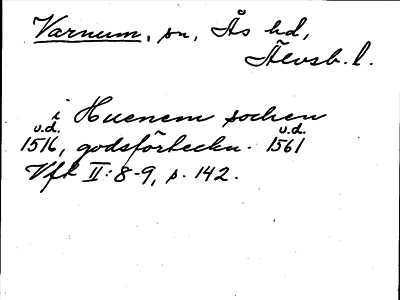 Varnum, sn, Ås hd,
Älvsb. l.
i Huenem socken
u.d. u.d.
1516, godsförteckn. 1561
Vfk II: 8-9, s. 142.